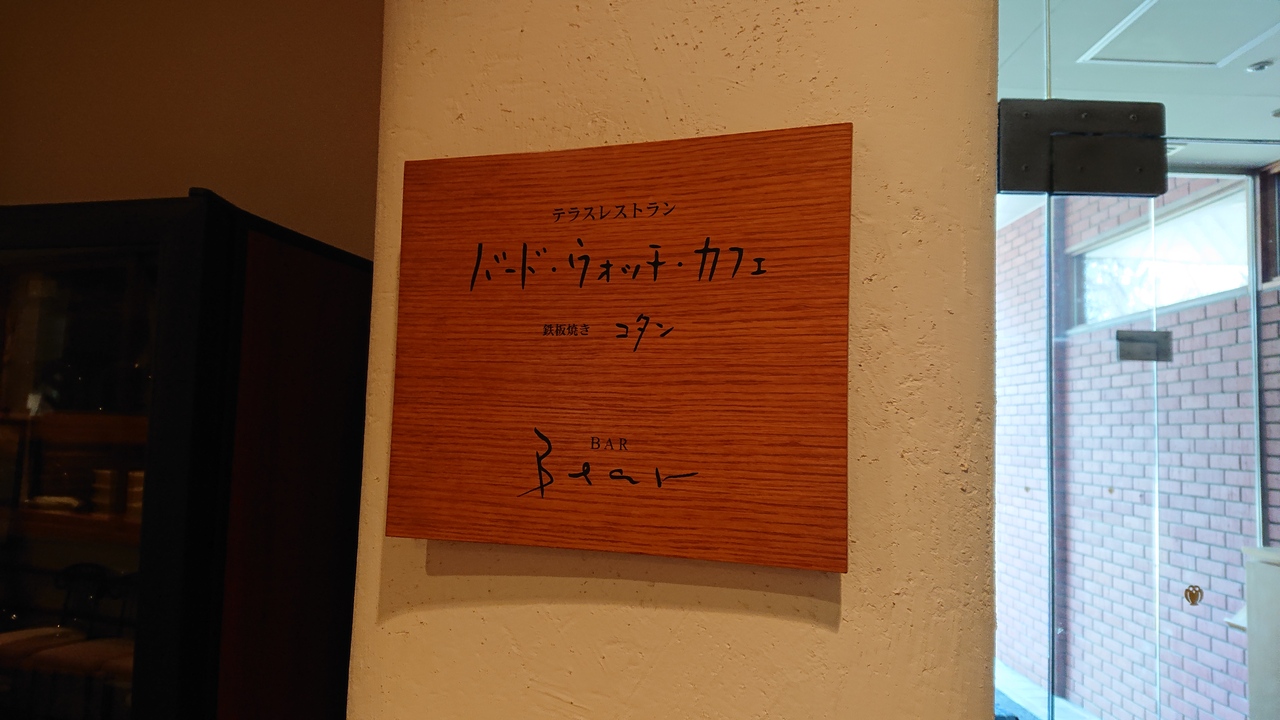 テラスレストラン
バード・ウォッチ・カフェ
鉄板焼き コタン
BAR
Bear